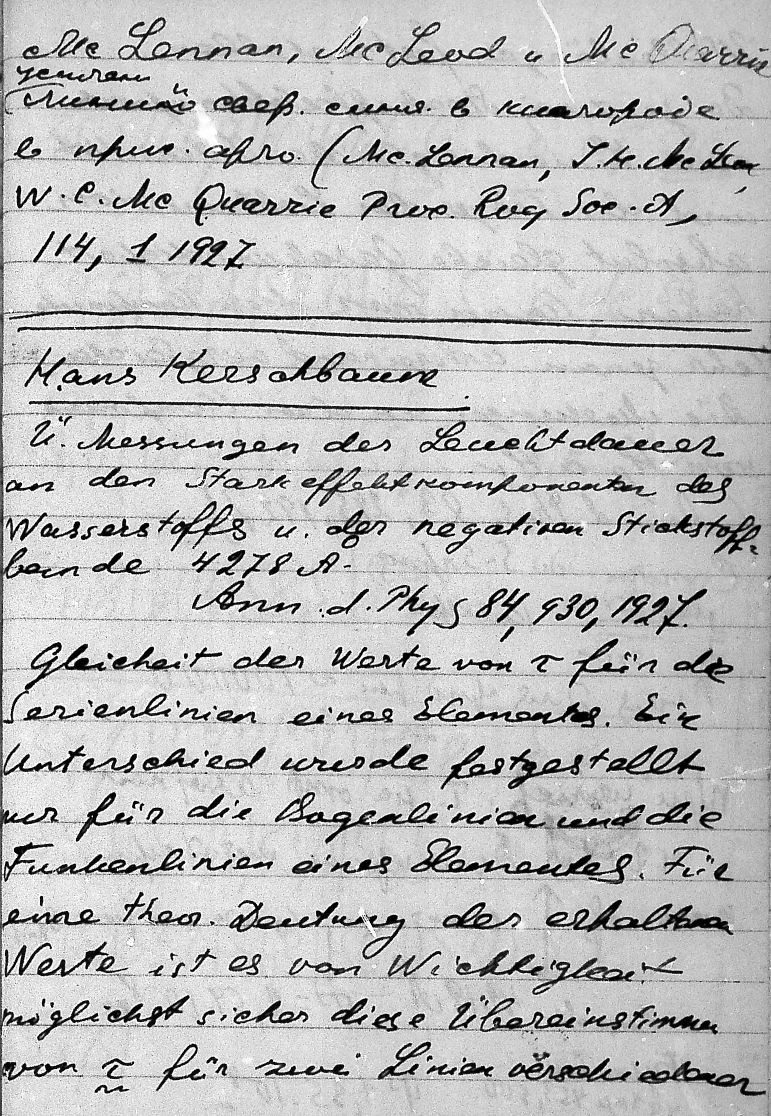 Mc Lennan, McLeod и Mc Quarrie
усилени
линий свер. сиян. в кислороде
в прис. арго. (Mc. Lennan, I. H. Mc Leo,
W. C. Mc Quarrie Proc. Roy Soc. A,
114, 1 1927
Hans Kerschbaum
Ü. Messungen der Leuchtdauer
an den Starkeffektkomponenten des
Wasserstoffs u. der negativen Stickstoff-
bande 4278 Å.
Ann. d. Phys 84, 930, 1927.
Gleicheit der Werte von τ für die
Serienlinien eines Elementes. Ein
Unterschied wurde festgestellt
nur für die Bogenlinien und die
Funkenlinien eines Elementes. Für
eine theor. Deutung der erhaltenen
Werte ist es von Wichtigkeit
möglichst sicher diese Übereinstimmn
von τ für zwei Linien verschiedener